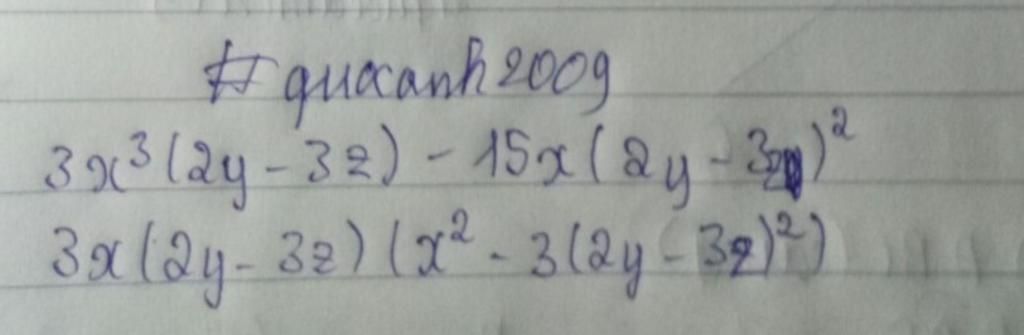 #quocanh2009
3x³(2y - 3z) - 15x(2y - 3z)²
3x(2y - 3z)(x² - 3(2y - 3z)²)